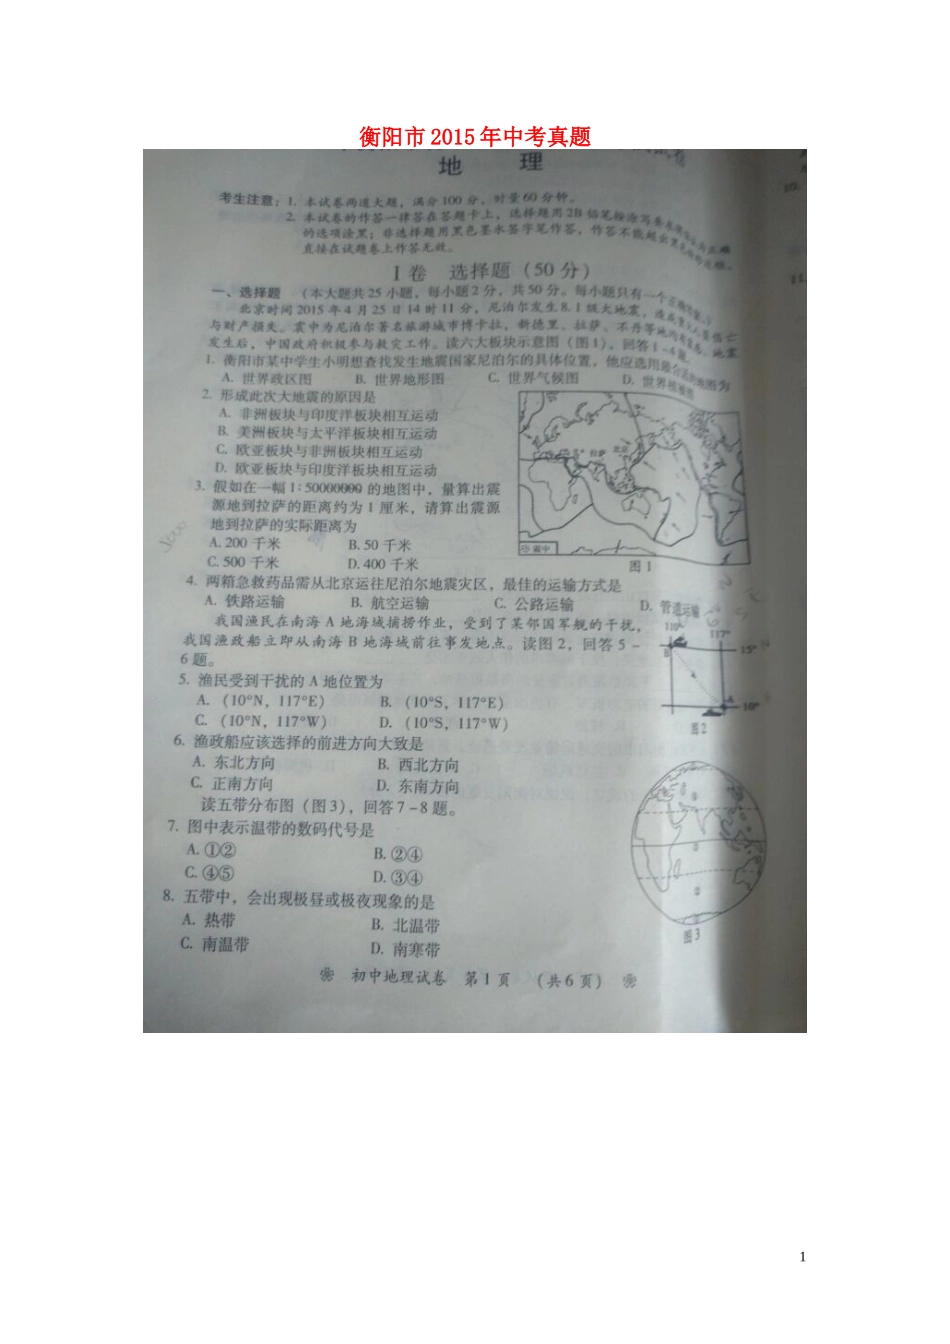 衡阳市 2015 年中考真题
地 理
考生注意：1. 本试卷两道大题，满分100分，时量60分钟。
2. 本试卷的作答一律答在答题卡上，选择题用2B铅笔按涂写要求将
的选项涂黑；非选择题用黑色墨水签字笔作答，作答不能超出
直接在试题卷上作答无效。
I 卷 选择题（50 分）
一、选择题 （本大题共25小题，每小题2分，共50分。每小题只有一个正确答案。）
北京时间2015年4月25日14时11分，尼泊尔发生8.1级大地震，造成重大人员伤亡
与财产损失。震中为尼泊尔著名旅游城市博卡拉，新德里、拉萨、不丹等地均有震感。地震
发生后，中国政府积极参与救灾工作。读六大板块示意图（图1），回答1-4题。
1. 衡阳市某中学生小明想查找发生地震国家尼泊尔的具体位置，他应选用最合适的地图为
A. 世界政区图 B. 世界地形图 C. 世界气候图 D. 世界
2. 形成此次大地震的原因是
A. 非洲板块与印度洋板块相互运动
B. 美洲板块与太平洋板块相互运动
C. 欧亚板块与非洲板块相互运动
D. 欧亚板块与印度洋板块相互运动
拉萨 北京
3. 假如在一幅 1:50000000 的地图中，量算出震
源地到拉萨的距离约为 1 厘米，请算出震源
地到拉萨的实际距离为
A. 200 千米 B. 50 千米
C. 500 千米 D. 400 千米
震中
图 1
4. 两箱急救药品需从北京运往尼泊尔地震灾区，最佳的运输方式是
A. 铁路运输 B. 航空运输 C. 公路运输 D. 管道运输
我国渔民在南海 A 地海域捕捞作业，受到了某邻国军舰的干扰，
我国渔政船立即从南海 B 地海域前往事发地点。读图 2，回答 5 -
6 题。
110° 117°
B 15°
A 10°
图 2
5. 渔民受到干扰的 A 地位置为
A. (10°N, 117°E) B. (10°S, 117°E)
C. (10°N, 117°W) D. (10°S, 117°W)
6. 渔政船应该选择的前进方向大致是
A. 东北方向 B. 西北方向
C. 正南方向 D. 东南方向
读五带分布图（图3），回答 7-8 题。
7. 图中表示温带的数码代号是
A. ①② B. ②④
C. ④⑤ D. ③④
8. 五带中，会出现极昼或极夜现象的是
A. 热带 B. 北温带
C. 南温带 D. 南寒带
图 3
初中地理试卷 第 1 页 （共 6 页）
1